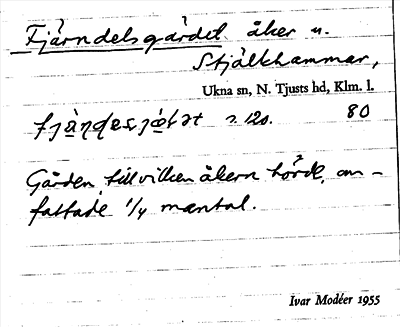 Fjärndelsgärdet åker u.
Stjälkhammar,
Ukna sn, N. Tjusts hd, Klm. l.
s. 120. 80
Gården, till vilken åkern hörde, om-
fattade 1/4 mantal.
Ivar Modéer 1955